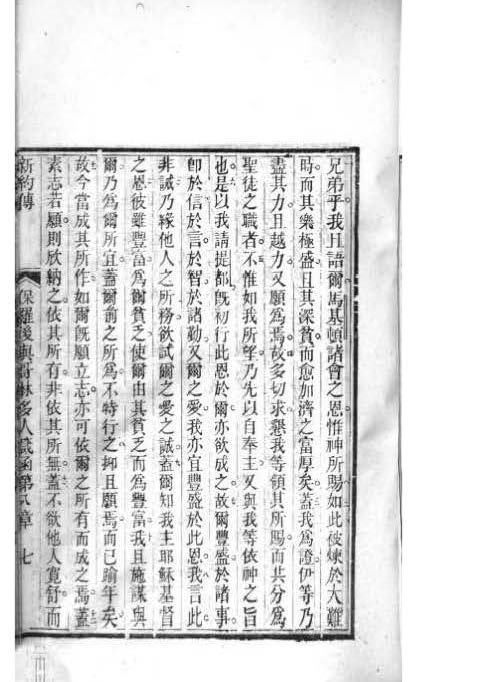 兄弟乎我且語爾馬基頓諸會之恩惟神所賜如此彼煉於大難
時而其樂極盛且其深貧而愈加濟之富厚矣蓋我為證伊等乃
盡其力且越力又願為焉故多切求懇我等領其所賜而共分為
聖徒之職者不惟如我所望乃先以自奉主又與我等依神之旨
也是以我請提都既初行此恩於爾亦欲成之故爾豐盛於諸事
卽於信於言於智於諸勤又爾之愛我亦宜豐盛於此恩我言此
非誡乃緣他人之所務欲試爾之愛之誠蓋爾知我主耶穌基督
之恩彼雖豐富為爾貧乏使爾由其貧乏而為豐富我且施謀與
爾乃為爾所宜蓋爾前之所為不特行之抑且願焉而已踰年矣
故今當成其所作如爾既願立志亦可依爾之所有而成之焉蓋
素志若願則欣納之依其所有非依其所無蓋不欲他人寬舒而
新約傳 保羅後與哥林多人識函第八章 七